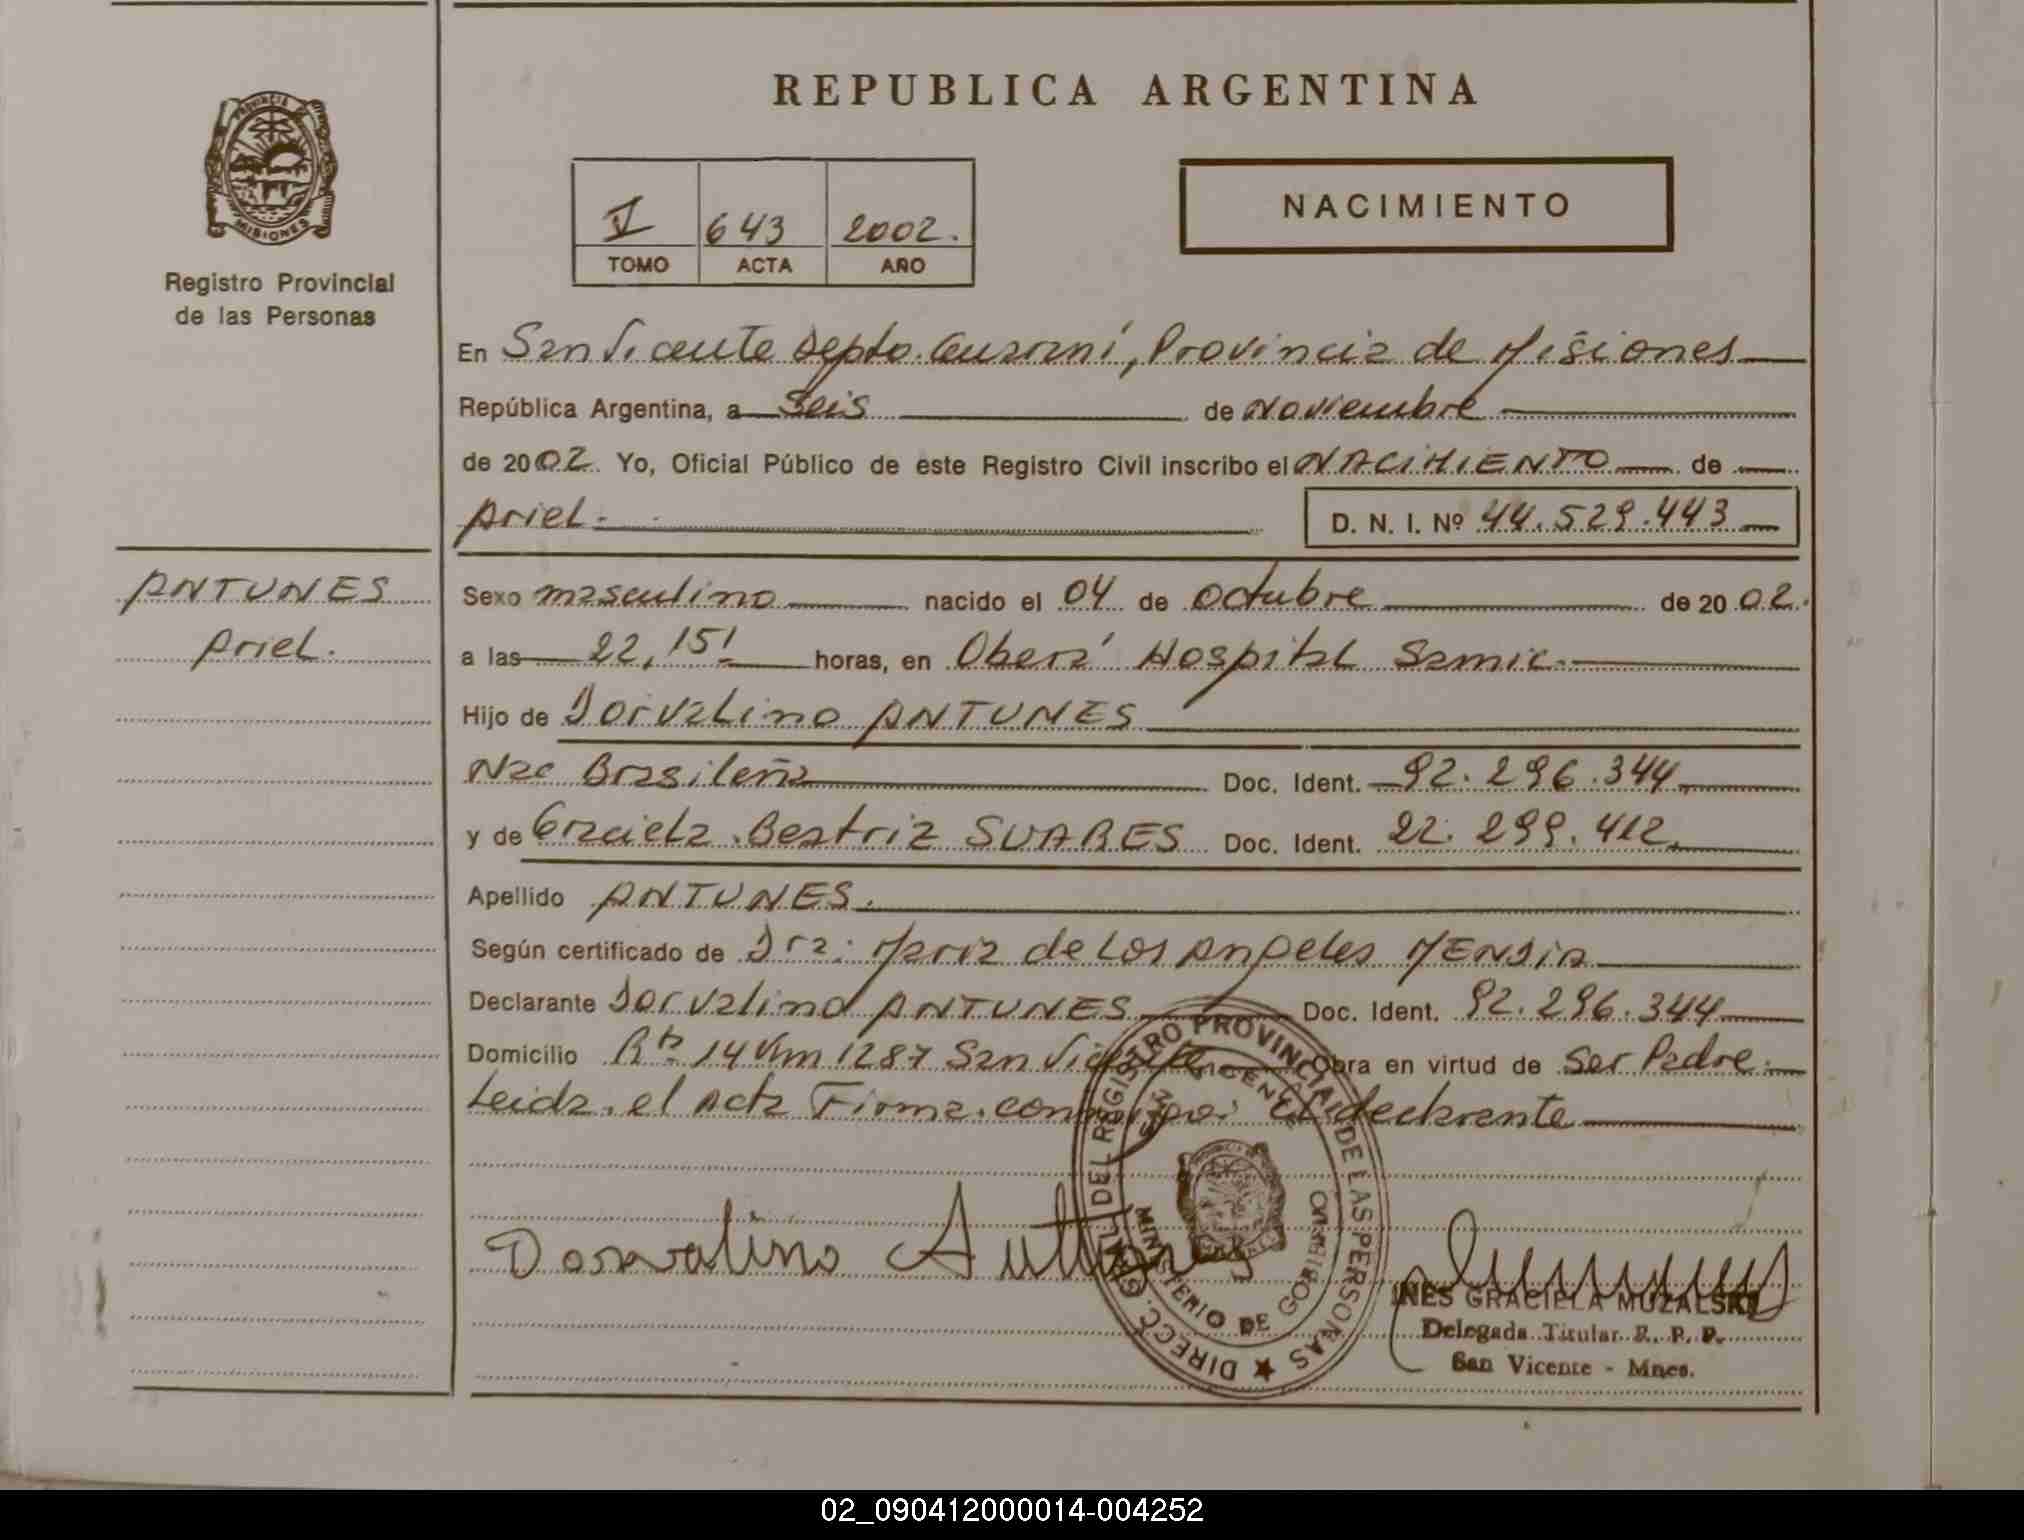 REPUBLICA ARGENTINA
PROVINCIA
MISIONES
Registro Provincial
de las Personas
V 643 2002.
TOMO ACTA AÑO
NACIMIENTO
En San Vicente Depto. Guaraní, Provincia de Misiones
República Argentina, a Seis de Noviembre
de 2002. Yo, Oficial Público de este Registro Civil inscribo el NACIMIENTO de
Ariel.
D. N. I. Nº 44.529.443
ANTUNES
Ariel.
Sexo masculino nacido el 04 de Octubre de 2002.
a las 22,15' horas, en Oberá Hospital Samic.
Hijo de Dorvalino ANTUNES
Nac Brasileña Doc. Ident. 92.296.344
y de Graciela Beatriz SUARES Doc. Ident. 22.299.412
Apellido ANTUNES.
Según certificado de Dra: Maria de Los Angeles MENDIA
Declarante Dorvalino ANTUNES Doc. Ident. 92.296.344
Domicilio Rta 14 Km 1287 San Vicente Obra en virtud de Ser Padre.
Leida el Acta Firma conmigo: el declarante
DIRECC. GRAL. DEL REGISTRO PROVINCIAL DE LAS PERSONAS
SAN VICENTE
MINISTERIO DE GOBIERNO
Dorvalino Antunes
INES GRACIELA MUZALSKI
Delegada Titular R. P. P.
San Vicente - Mnes.
02_090412000014-004252